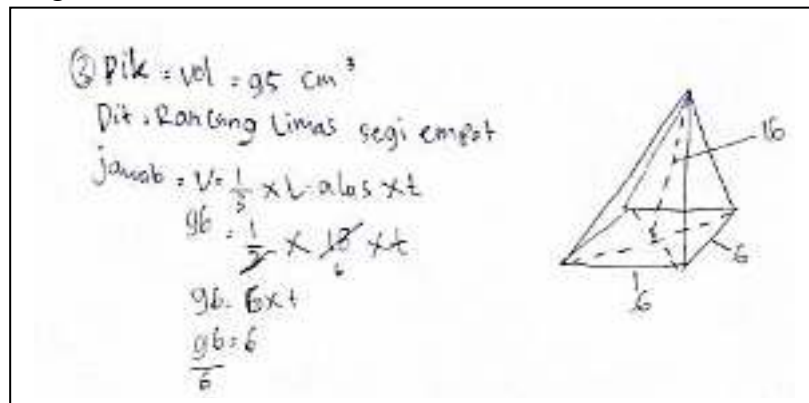 ② Dik = vol = 95 cm³
Dit . Rancang Limas segi empat
jawab = V = 1/3 x L alas x t
96 = 1/3 x 18 x t
6
96 = 6 x t
96 = 6
6
16
6
6